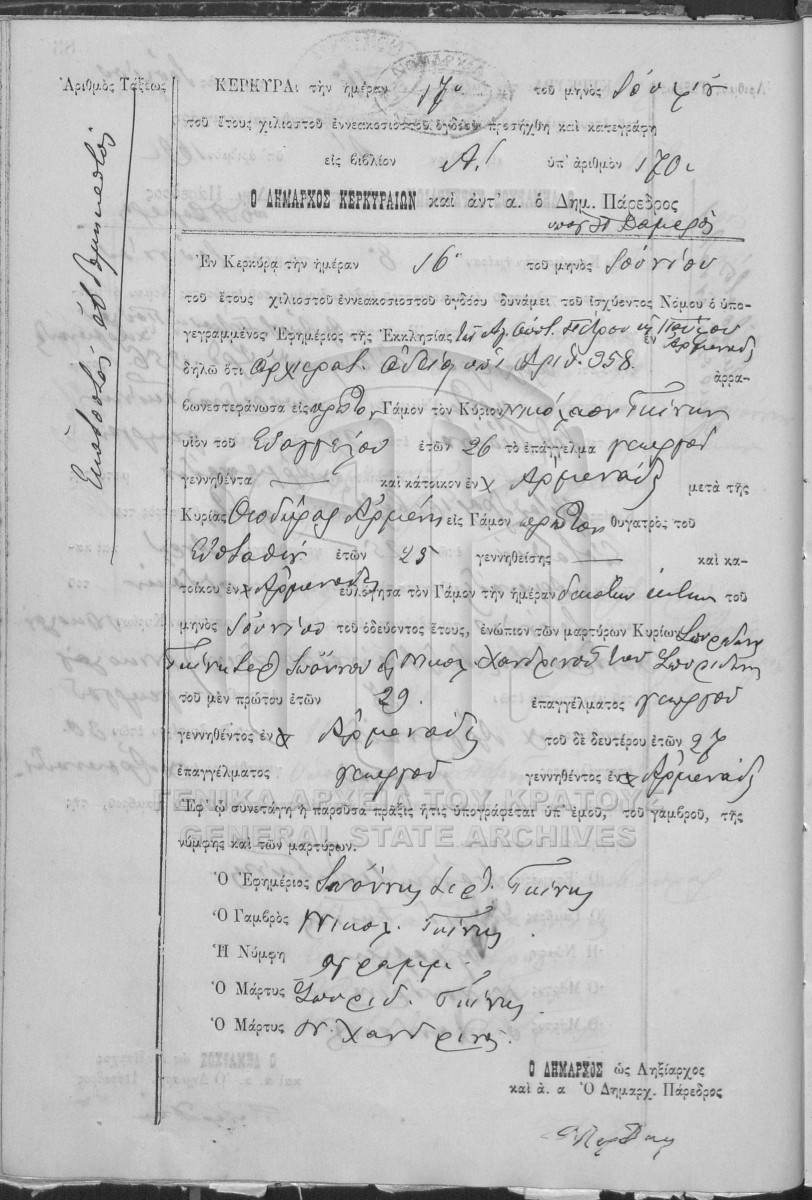 Ἀριθμὸς Τάξεως
Ἑκατοστὸς
ΚΕΡΚΥΡΑι τὴν ἡμέραν 17η τοῦ μηνὸς Ἰουνίου
τοῦ ἔτους χιλιοστοῦ ἐννεακοσιοστοῦ ὀγδόου προσήχθη καὶ κατεγράφη
εἰς βιβλίον Α! ὑπ' ἀριθμὸν 170
Ο ΔΗΜΑΡΧΟΣ ΚΕΡΚΥΡΑΙΩΝ καὶ ἀντ' α. ὁ Δημ. Πάρεδρος
Ἐν Κερκύρᾳ τὴν ἡμέραν 16η τοῦ μηνὸς Ἰουνίου
τοῦ ἔτους χιλιοστοῦ ἐννεακοσιοστοῦ ὀγδόου δυνάμει τοῦ ἰσχύοντος Νόμου ὁ ὑπο-
γεγραμμένος Ἐφημέριος τῆς Ἐκκλησίας τῶν Ἁγ. Ἀποστ. Πέτρου καὶ Παύλου ἐν Ἀρμενάδες
δηλῶ ὅτι ἀρχιερατ. ἀδείᾳ ὑπ' ἀριθ. 358 ἀρρα-
βωνεστεφάνωσα εἰς πρῶτον Γάμον τὸν Κύριον Νικόλαον Γκίνην
υἱὸν τοῦ Εὐαγγέλου ἐτῶν 26 τὸ ἐπάγγελμα γεωργοῦ
γεννηθέντα — καὶ κάτοικον ἐν Ἀρμενάδες μετὰ τῆς
Κυρίας Θεοδώρας Ἀρμένη εἰς Γάμον πρῶτον θυγατρὸς τοῦ
Εὐσταθίου ἐτῶν 25 γεννηθείσης — καὶ κα-
τοίκου ἐν Ἀρμενάδες εὐλόγησα τὸν Γάμον τὴν ἡμέραν δεκάτην ἕκτην τοῦ
μηνὸς Ἰουνίου τοῦ ὁδεύοντος ἔτους, ἐνώπιον τῶν μαρτύρων Κυρίων Σπυρίδων
Γκίνη Ἰωάννου καὶ Νικολ. Χανδρινοῦ τοῦ Σπυρίδωνος
τοῦ μὲν πρώτου ἐτῶν 29. ἐπαγγέλματος γεωργοῦ
γεννηθέντος ἐν Ἀρμενάδες τοῦ δὲ δευτέρου ἐτῶν 27
ἐπαγγέλματος γεωργοῦ γεννηθέντος ἐν Ἀρμενάδες
Ἐφ' ᾧ συνετάγη ἡ παροῦσα πρᾶξις ἥτις ὑπογράφεται ὑπ' ἐμοῦ, τοῦ γαμβροῦ, τῆς
νύμφης καὶ τῶν μαρτύρων.
ΓΕΝΙΚΑ ΑΡΧΕΙΑ ΤΟΥ ΚΡΑΤΟΥΣ
GENERAL STATE ARCHIVES
Ὁ Ἐφημέριος Ἰωάννης Γκίνης
Ὁ Γαμβρὸς Νικολ. Γκίνης
Ἡ Νύμφη ἀγράμμ.
Ὁ Μάρτυς Σπυρίδ. Γκίνης
Ὁ Μάρτυς Ν. Χανδρινός
Ο ΔΗΜΑΡΧΟΣ ὡς Ληξίαρχος
καὶ ἀ. α Ὁ Δημαρχ. Πάρεδρος